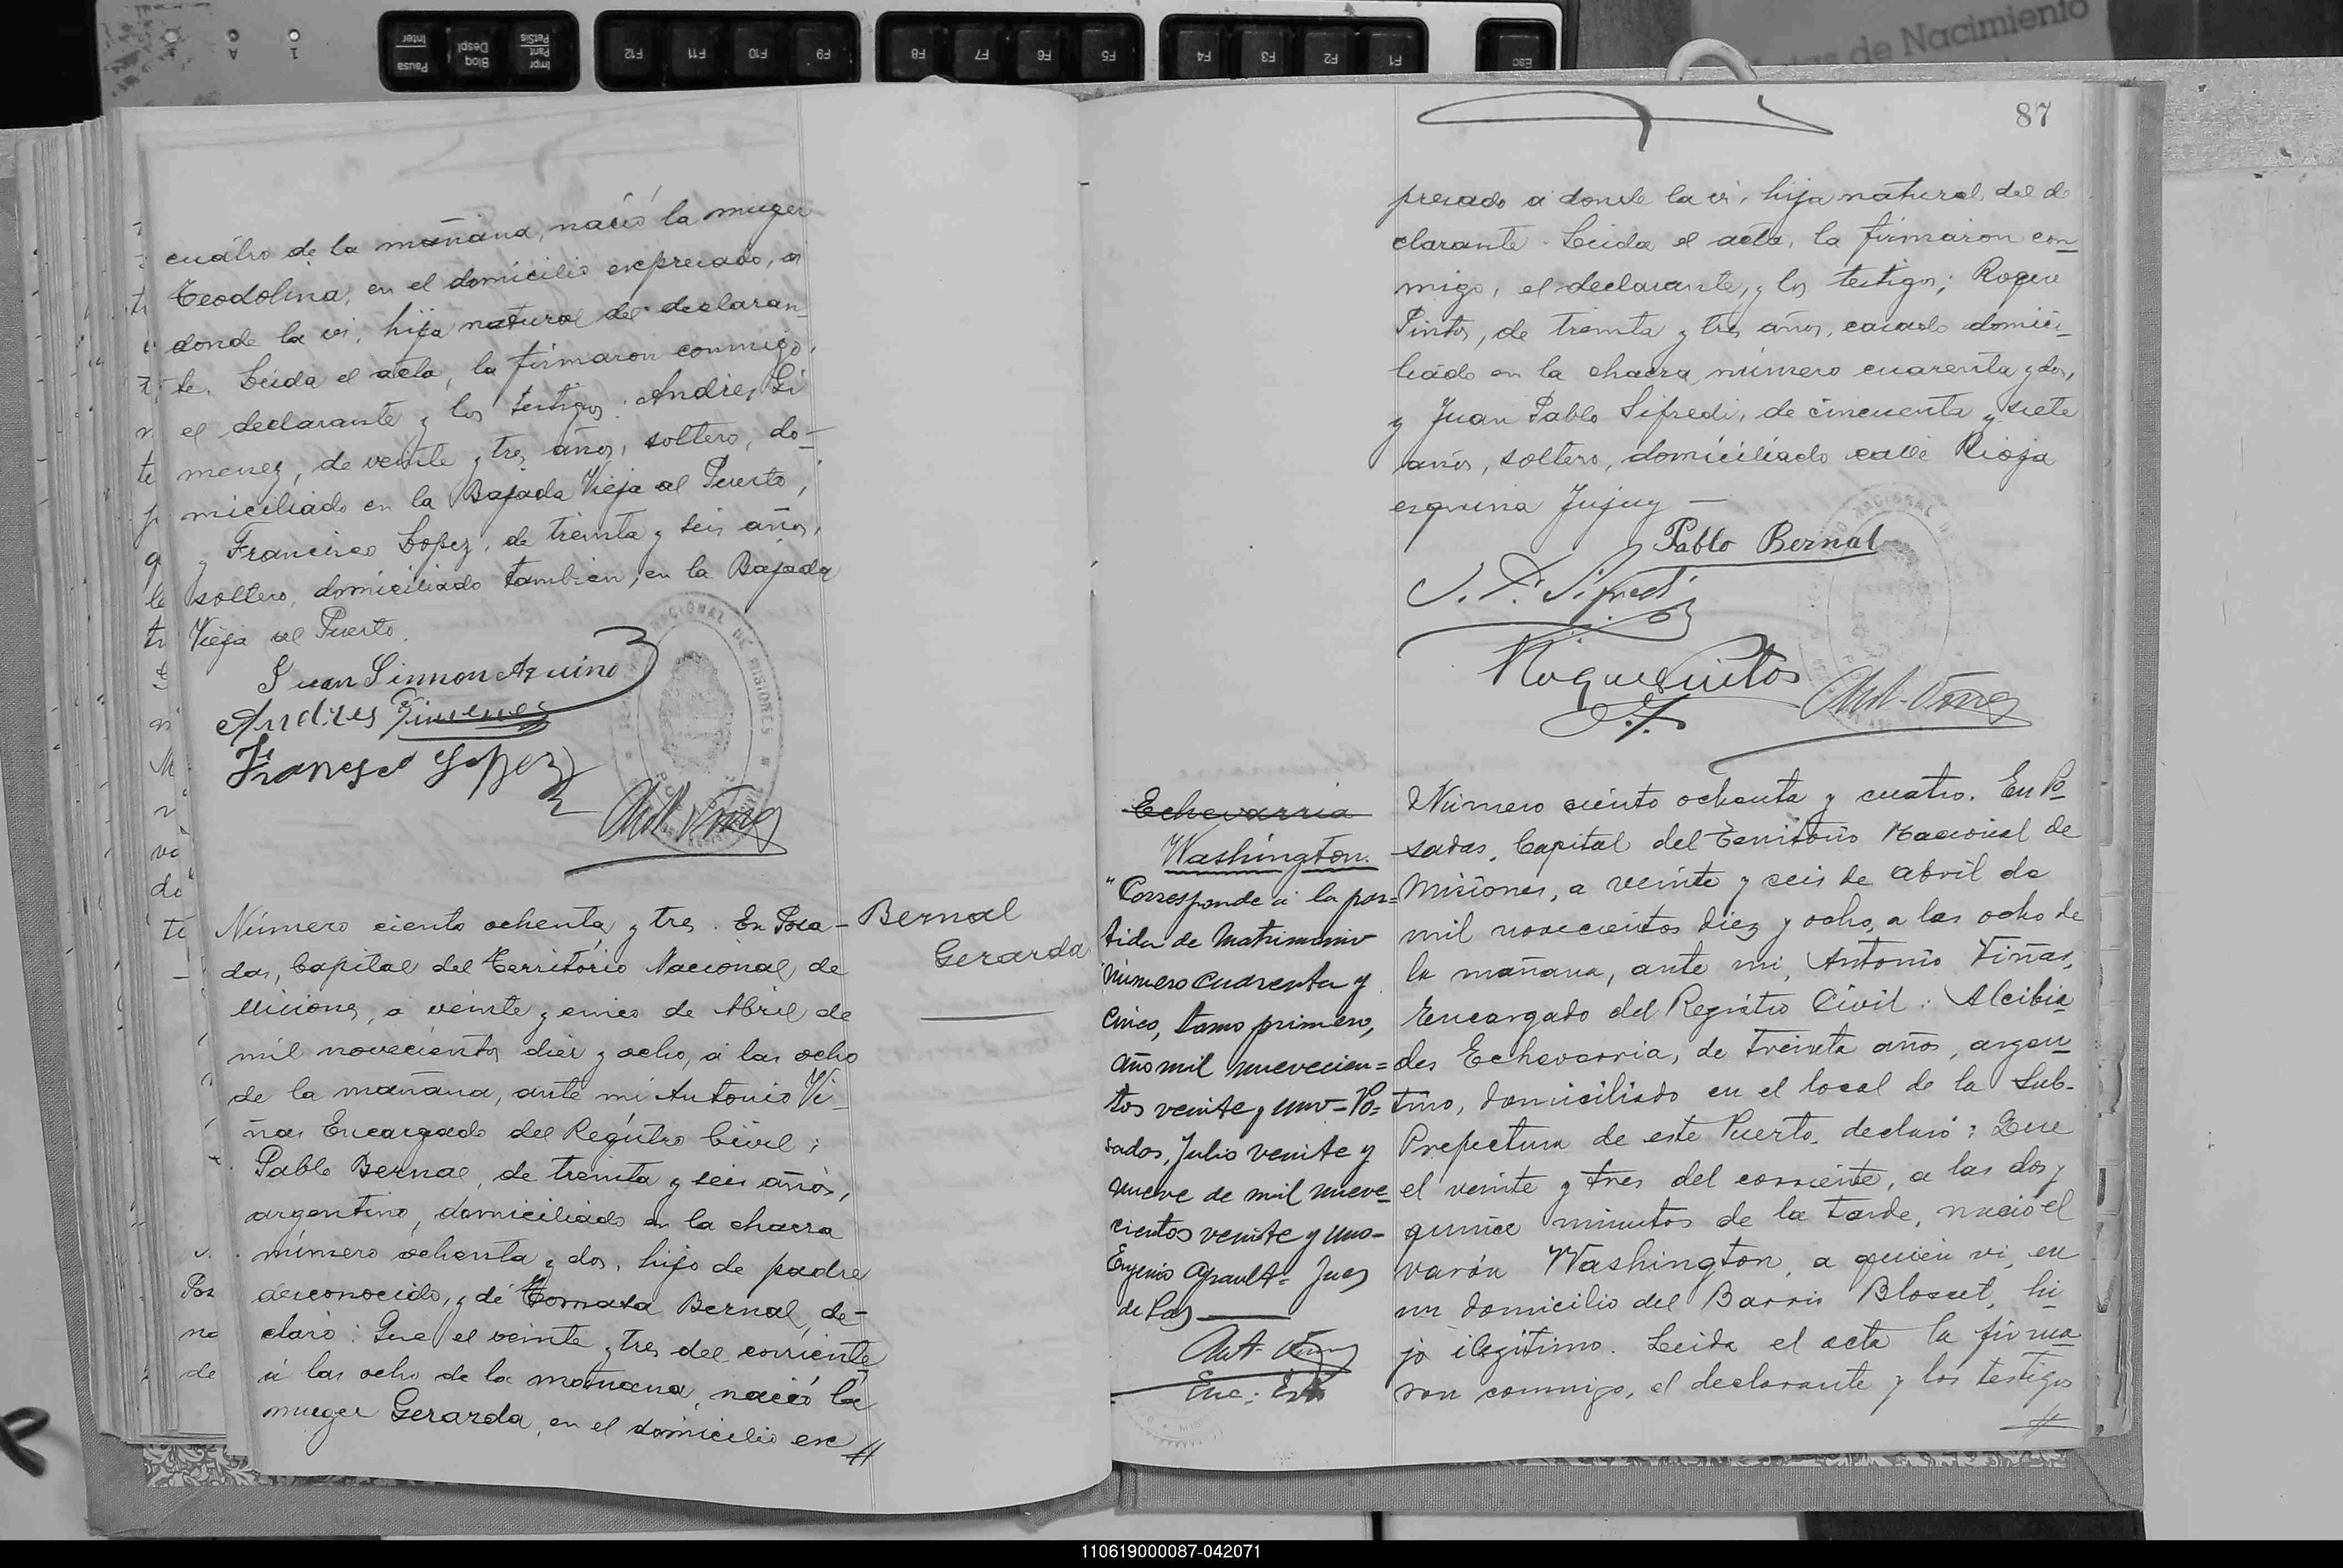 cuatro de la mañana, nació la muger
Teodolina, en el domicilio expresado, a
donde la vi, hija natural del declaran-
te. Leida el acta, la firmaron conmigo,
el declarante y los testigos: Andres Gi
menez, de veinte y tres años, soltero, do-
miciliado en la Bajada Vieja al Puerto,
y Francisco Lopez, de treinta y seis años,
soltero, domiciliado tambien, en la Bajada
Vieja al Puerto.
Juan Simon Aquino
Andres Gimenez
Francisco Lopez
Bernal
Gerarda
Número ciento ochenta y tres. En Posa-
das, Capital del Territorio Nacional de
Misiones, a veinte y cinco de Abril de
mil novecientos diez y ocho, a las ocho
de la mañana, ante mi Antonio Vi-
ñas Encargado del Registro Civil;
Pablo Bernal, de treinta y seis años,
argentino, domiciliado en la chacra
número ochenta y dos, hijo de padre
desconocido, y de Tomasa Bernal, de-
claró: Que el veinte y tres del corriente
a las ocho de la mañana, nació la
muger Gerarda, en el domicilio ex
87
presado a donde la vi, hija natural del de
clarante. Leida el acta, la firmaron con-
migo, el declarante, y los testigos; Roque
Pintos, de treinta y tres años, casado domici-
liado en la chacra número cuarenta y dos,
y Juan Pablo Sifredi, de cincuenta y siete
años, soltero, domiciliado calle Rioja
esquina Jujuy —
Pablo Bernal
J. P. Sifredi
Roque Pintos
Echevarria
Washington.
"Corresponde á la par=
tida de Matrimonio
número cuarenta y
cinco, tomo primero,
año mil nuevecien=
tos veinte y uno = Po=
sadas, Julio veinte y
nueve de mil nueve-
cientos veinte y uno-
Eugenio = Juez
de Paz
Número ciento ochenta y cuatro. En Po-
sadas, Capital del Territorio Nacional de
Misiones, a veinte y seis de Abril de
mil novecientos diez y ocho, a las ocho de
la mañana, ante mi, Antonio Viñas,
Encargado del Registro Civil: Alcibia-
des Echevarria, de treinta años, argen-
tino, domiciliado en el local de la Sub-
Prefectura de este Puerto, declaró: Que
el veinte y tres del corriente, a las dos y
quince minutos de la tarde, nació el
varón Washington, a quien vi, en
un domicilio del Barrio Blosset, hi-
jo ilegítimo. Leida el acta la firma-
ron conmigo, el declarante y los testigos
110619000087-042071